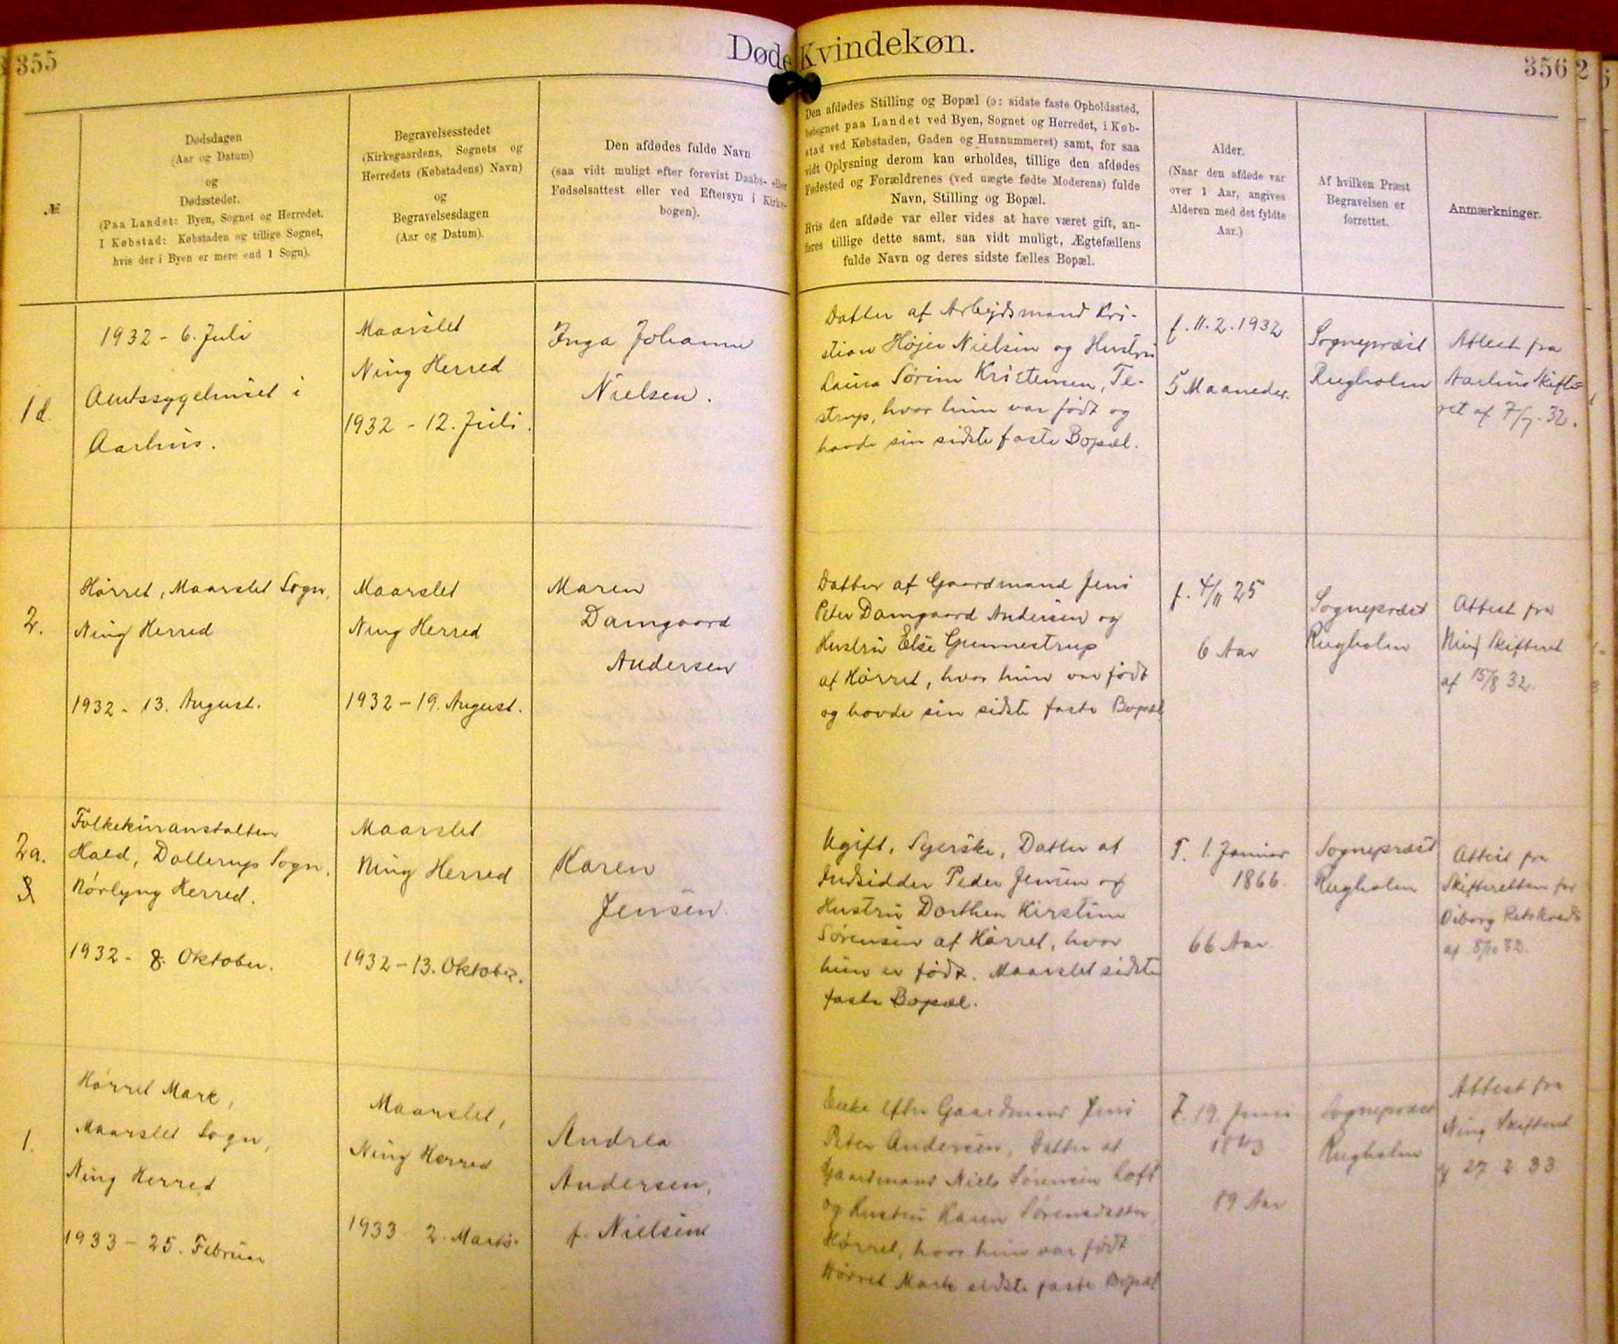 355
Døde Kvindekøn.
356
2
№
Dødsdagen
(Aar og Datum)
og
Dødsstedet.
(Paa Landet: Byen, Sognet og Herredet.
I Købstad: Købstaden og tillige Sognet,
hvis der i Byen er mere end 1 Sogn).
Begravelsesstedet
(Kirkegaardens, Sognets og
Herredets (Købstadens) Navn)
og
Begravelsesdagen
(Aar og Datum).
Den afdødes fulde Navn
(saa vidt muligt efter forevist Daabs- eller
Fødselsattest eller ved Eftersyn i Kirke-
bogen).
Den afdødes Stilling og Bopæl (ɔ: sidste faste Opholdssted,
betegnet paa Landet ved Byen, Sognet og Herredet, i Køb-
stad ved Købstaden, Gaden og Husnummeret) samt, for saa
vidt Oplysning derom kan erholdes, tillige den afdødes
Fødested og Forældrenes (ved uægte fødte Moderens) fulde
Navn, Stilling og Bopæl.
Hvis den afdøde var eller vides at have været gift, an-
føres tillige dette samt, saa vidt muligt, Ægtefællens
fulde Navn og deres sidste fælles Bopæl.
Alder.
(Naar den afdøde var
over 1 Aar, angives
Alderen med det fyldte
Aar.)
Af hvilken Præst
Begravelsen er
forrettet.
Anmærkninger.
1d.
1932 - 6. Juli
Amtssygehuset i
Aarhus.
Maarslet
Ning Herred
1932 - 12. Juli.
Inga Johanne
Nielsen.
Datter af Arbejdsmand Kri-
stian Højer Nielsen og Hustru
Laura Sørine Kristensen, Te-
strup, hvor hun var født og
havde sin sidste faste Bopæl.
f. 11. 2. 1932
5 Maaneder.
Sognepræst
Rugholm
Attest fra
Aarhus Skifte-
ret af 7/7. 32.
2.
Hørret, Maarslet Sogn,
Ning Herred
1932 - 13. August.
Maarslet
Ning Herred
1932 - 19. August.
Maren
Damgaard
Andersen
Datter af Gaardmand Jens
Peter Damgaard Andersen og
Hustru Else Gunnestrup
af Hørret, hvor hun var født
og havde sin sidste faste Bopæl
f. 4/11 25
6 Aar
Sognepræst
Rugholm
Attest fra
Ning Skifteret
af 15/8 32.
2a.
3
Folkekuranstalten
Hald, Dollerup Sogn,
Nørlyng Herred.
1932 - 8. Oktober.
Maarslet
Ning Herred
1932 - 13. Oktober.
Karen
Jensen
Ugift, Syerske, Datter af
Indsidder Peder Jensen og
Hustru Dorthea Kirstine
Sørensen af Hørret, hvor
hun er født. Maarslet sidste
faste Bopæl.
F. 1. Januar
1866.
66 Aar
Sognepræst
Rugholm
Attest fra
Skifteretten for
Viborg Retskreds
af 8/10 32.
1.
Hørret Mark,
Maarslet Sogn,
Ning Herred
1933 - 25. Februar
Maarslet,
Ning Herred
1933 2. Marts.
Andrea
Andersen,
f. Nielsen
Enke efter Gaardmand Jens
Peter Andersen, Datter af
Gaardmand Niels Sørensen Loft
og Hustru Karen Sørensdatter,
Hørret, hvor hun var født
Hørret Mark sidste faste Bopæl
F. 19. Juni
1843
89 Aar
Sognepræst
Rugholm
Attest fra
Ning Skifteret
af 27 2 33